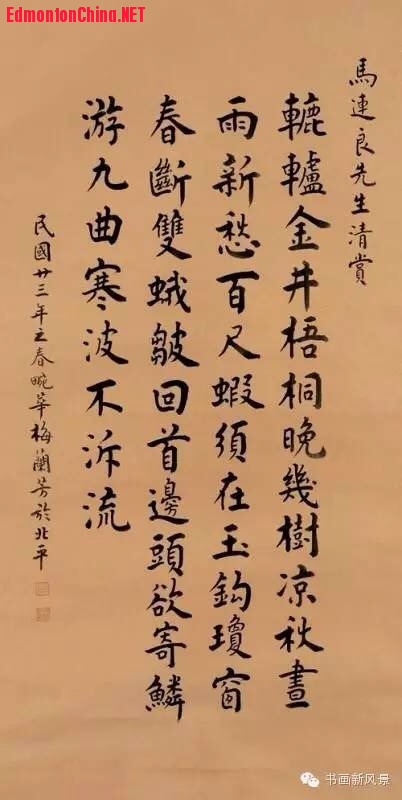 EdmontonChina.NET
馬連良先生清賞
轆轤金井梧桐晚幾樹凉秋晝
雨新愁百尺蝦須在玉鈎瓊窗
春斷雙蛾皺回首邊頭欲寄鱗
游九曲寒波不泝流
民國廿三年之春畹華梅蘭芳於北平
书画新风景